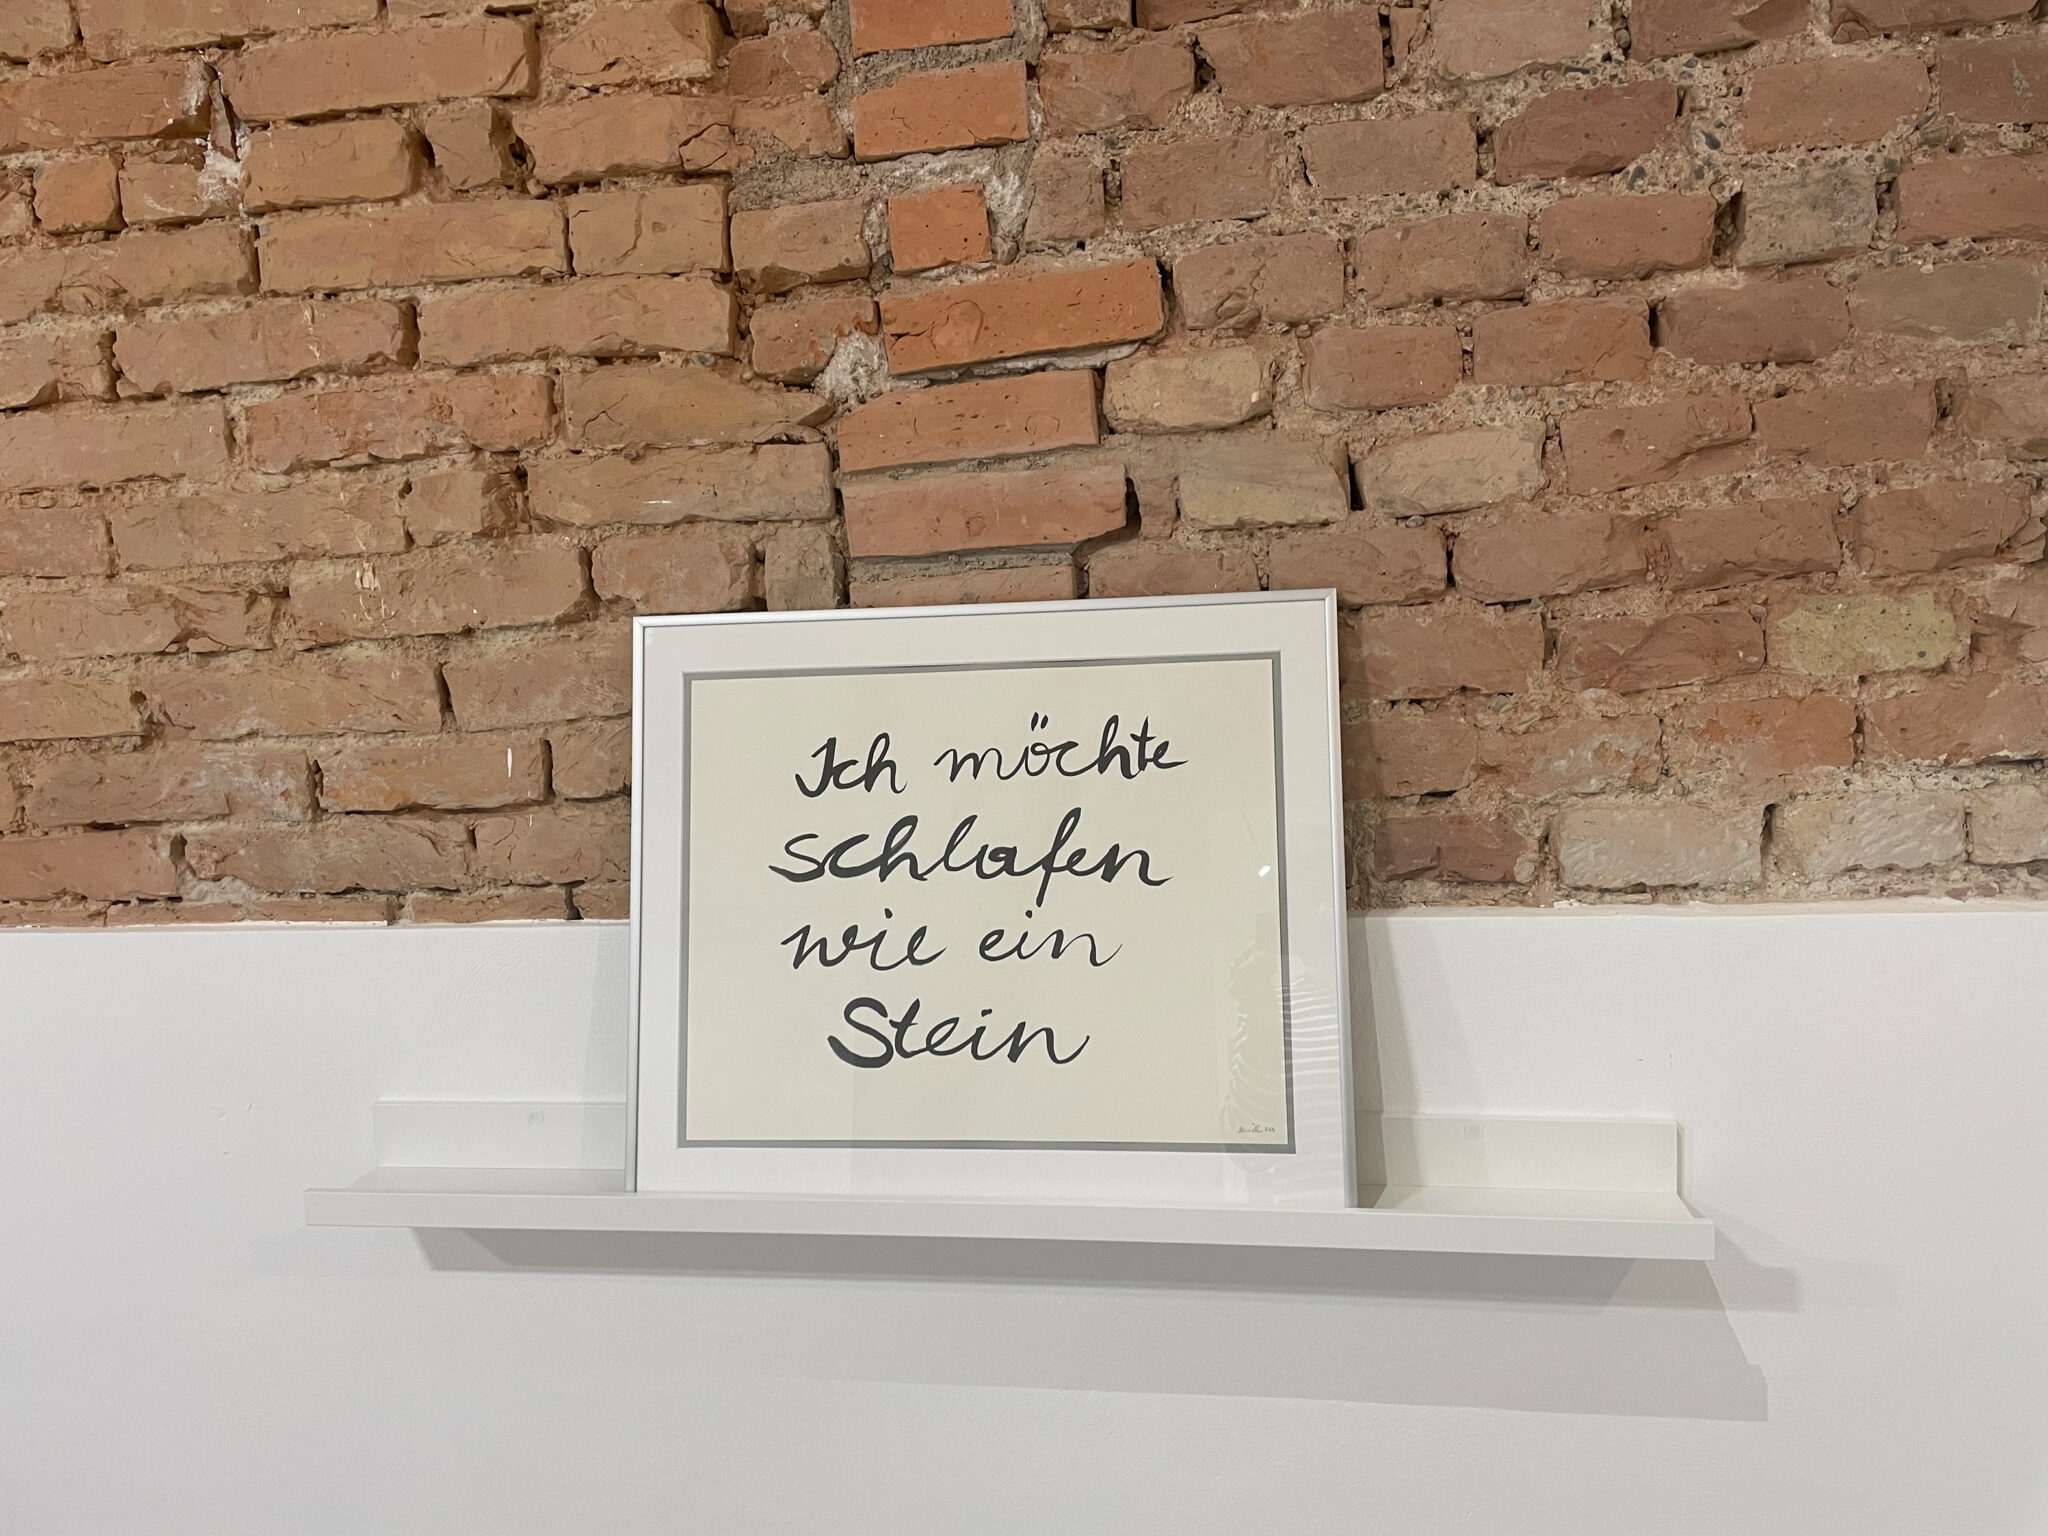 Ich möchte
schlafen
wie ein
Stein